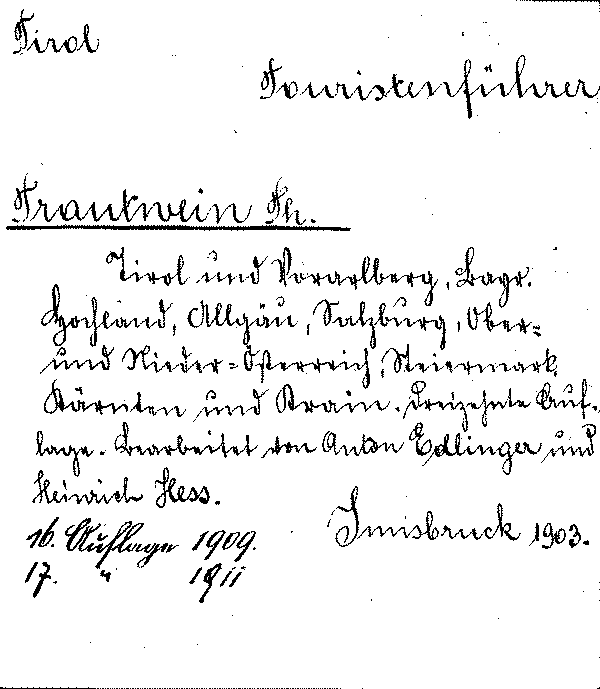 Tirol
Touristenführer
Trautwein Th.
Tirol und Vorarlberg, Bayr.
Hochland, Allgäu, Salzburg, Ober-
und Nieder-Österreich, Steiermark,
Kärnten und Krain. Dreizehnte Auf-
lage. Bearbeitet von Anton Edlinger und
Heinrich Hess.
Innsbruck 1903.
16. Auflage 1909.
17. " 1911